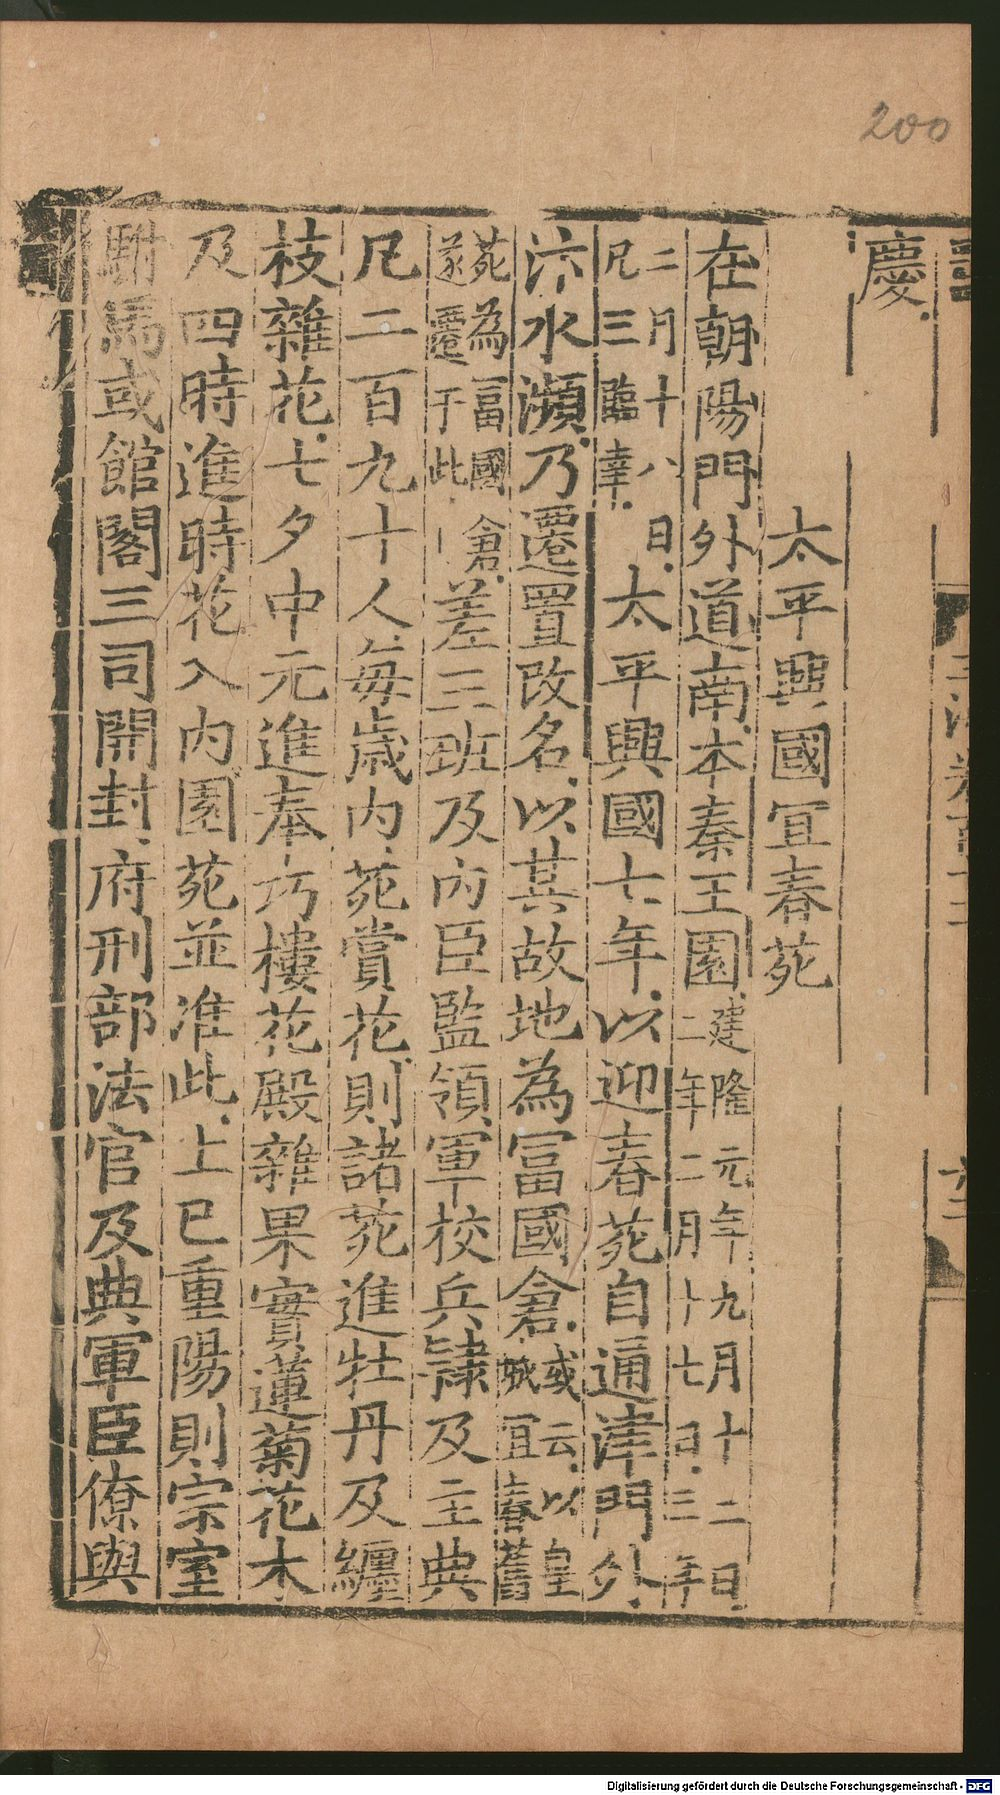 200
慶
太平興國宜春苑
在朝陽門外道南本秦王園建隆元年九月十二日二年二月十七日三年
二月十八日凡三臨幸太平興國七年以迎春苑自通津門外
汴水瀕乃遷置改名以其故地為富國倉或云以皇城宜春舊
苑為富國倉遂遷于此差三班及內臣監領軍校兵隷及主典
凡二百九十人每歲內苑賞花則諸苑進牡丹及纏
枝雜花七夕中元進奉巧樓花殿雜果實蓮菊花木
及四時進時花入內園苑並准此上巳重陽則宗室
駙馬或館閣三司開封府刑部法官及典軍臣僚與
Digitalisierung gefördert durch die Deutsche Forschungsgemeinschaft - DFG